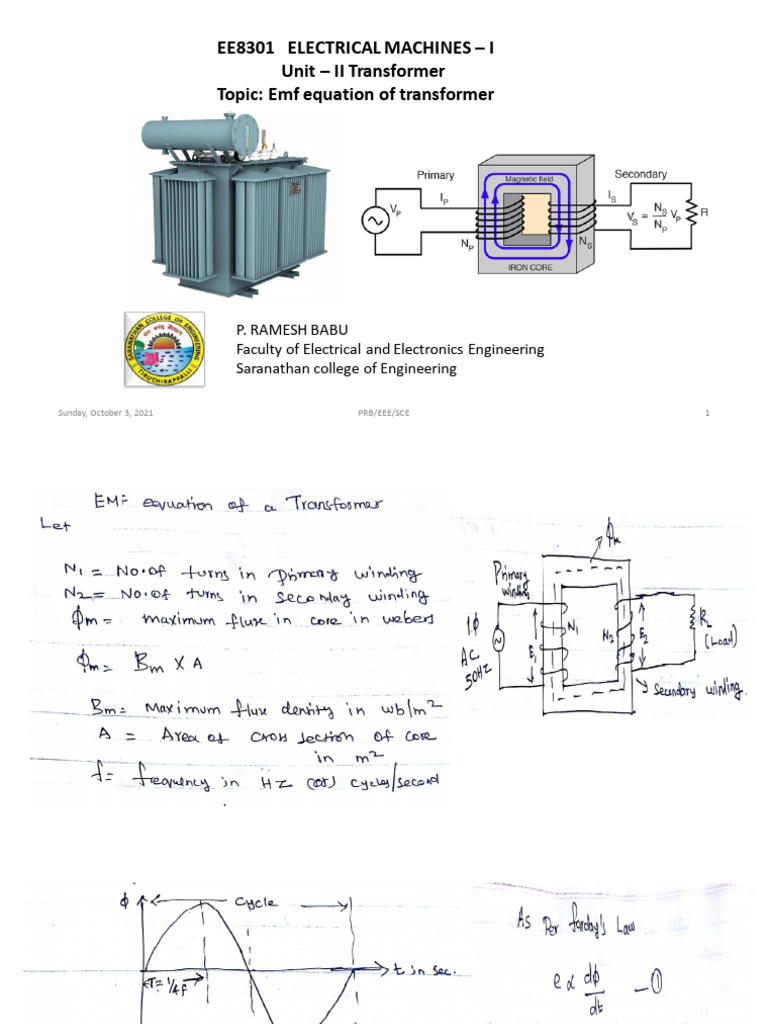 EE8301 ELECTRICAL MACHINES – I
Unit – II Transformer
Topic: Emf equation of transformer
Primary
Magnetic field
Secondary
I_P
I_S
V_P
V_S = N_S/N_P V_P
R
N_P
N_S
IRON CORE
SARANATHAN COLLEGE OF ENGINEERING
TIRUCHIRAPPALLI
P. RAMESH BABU
Faculty of Electrical and Electronics Engineering
Saranathan college of Engineering
Sunday, October 3, 2021
PRB/EEE/SCE
1
EMF equation of a Transformer
Let
N1 = No.of turns in primary winding
N2 = No.of turns in seconday winding
ϕm = maximum flux in core in webers
ϕm = Bm X A
Bm = Maximum flux density in wb/m²
A = Area of cross section of core
in m²
f = frequency in HZ (or) cycles/second
ϕm
Primary
winding
1ϕ
AC
50HZ
E1
N1
N2
E2
RL
(Load)
Secondary winding.
ϕ
cycle
T = 1/4f
t in sec.
As Per farday's Law
e ∝ dϕ/dt — ①